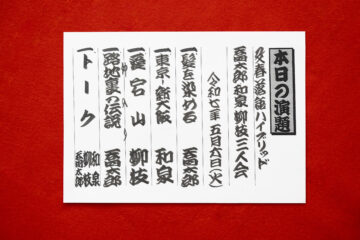 本日の演題
文春落語ハイブリッド
喬太郎 和泉 柳枝 三人会
令和七年 五月六日(火)
一 髪を染める 喬太郎
一 東京-新大阪 和泉
一 愛宕山 柳枝
仲入り
一 路地裏の伝説 喬太郎
一 トーク 和泉 柳枝 喬太郎